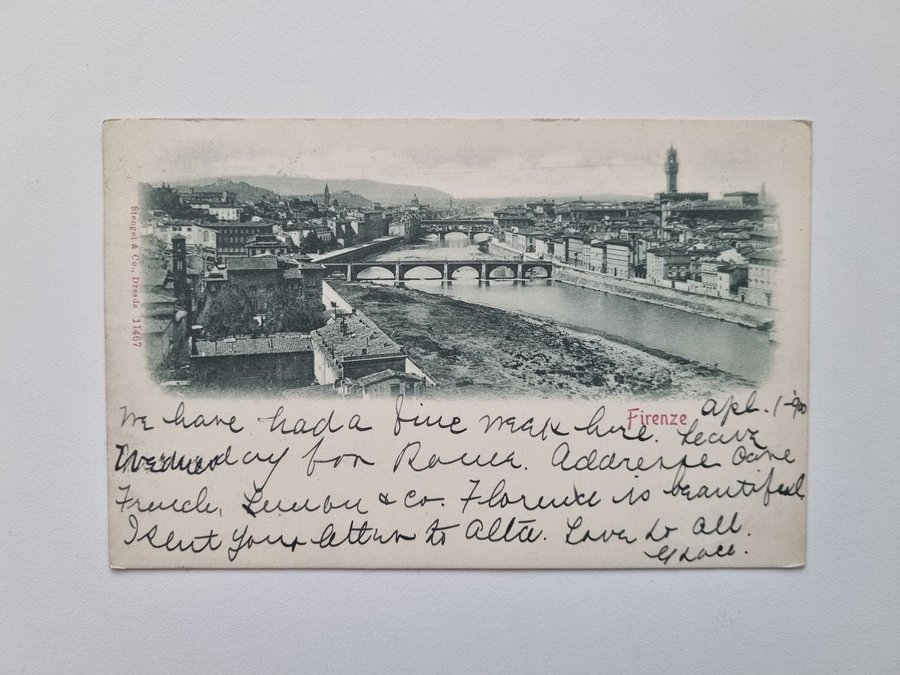 Stengel & Co., Dresda 11467
Firenze
Apl. 1-'00
We have had a fine week here. Leave
Wednesday for Rome. Addresse Care
French, Lemon & Co. Florence is beautiful
I sent your letter to Alta. Love to all.
Grace.